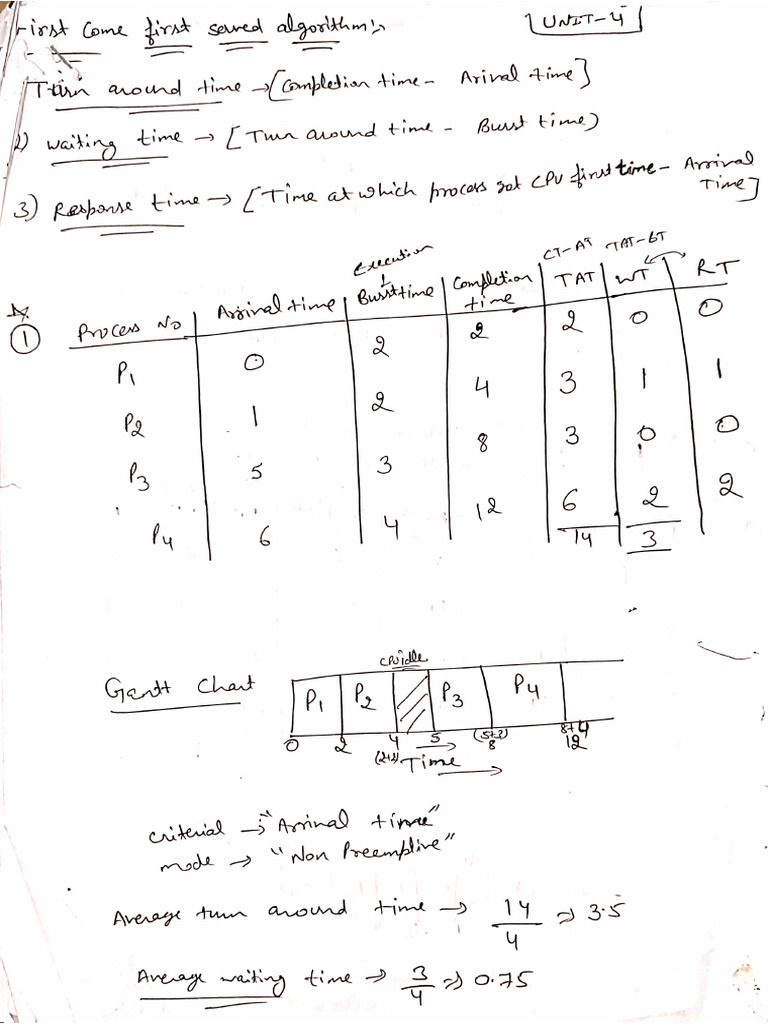 First Come first served algorithm:-
UNIT-4
Turn around time → [Completion time - Arival time]
2) waiting time → [Turn around time - Burst time)
3) Response time → [Time at which process got CPU first time - Arrival Time]
Execution
CT-AT TAT-BT
① Process No Arrival time Burst time Completion time TAT WT RT
P1 0 2 2 2 0 0
P2 1 2 4 3 1 1
P3 5 3 8 3 0 0
P4 6 4 12 6 2 2
14 3
CPU idle
Gantt Chart P1 P2 P3 P4
0 2 4 5 (5+3) 8 8+4 12
(2+2) Time →
criterial → "Arrival time"
mode → "Non Preemptive"
Average turn around time → 14/4 ⇒ 3.5
Average waiting time → 3/4 ⇒ 0.75